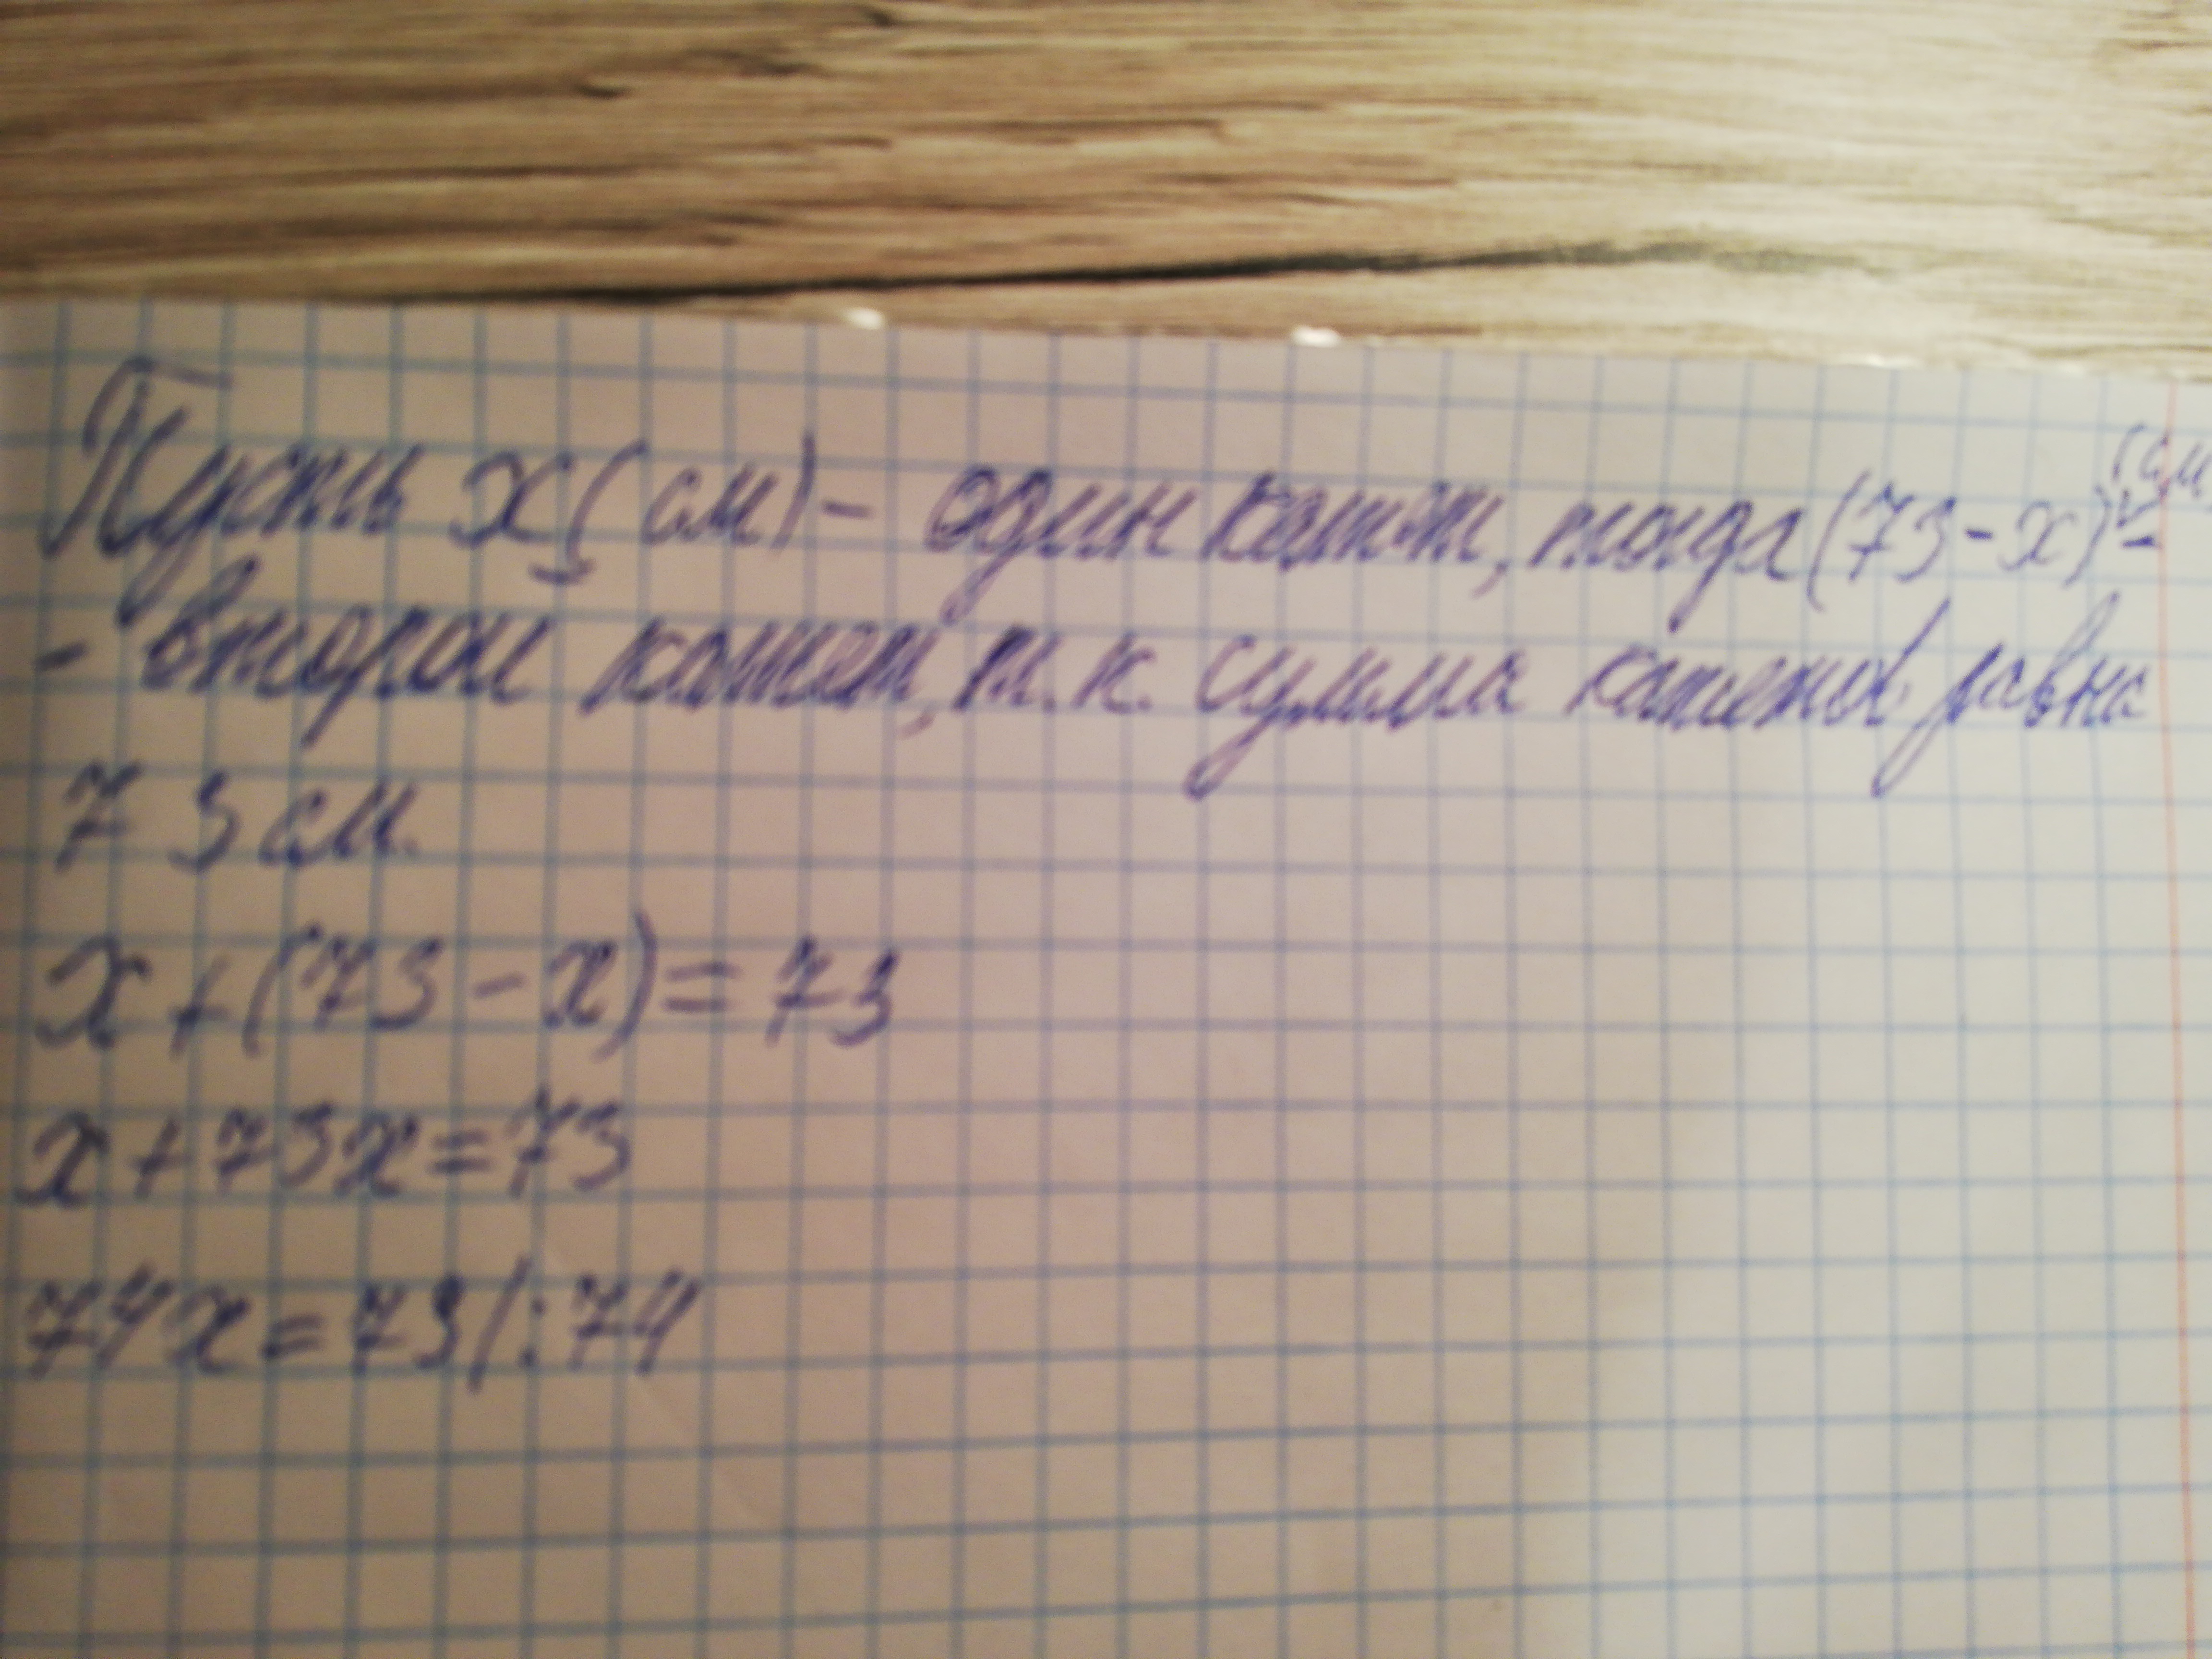 Пусть x (см) - один катет, тогда (73-x) (см) -
- второй катет, т.к. сумма катетов равна
73 см.
x + (73 - x) = 73
x + 73x = 73
74x = 73 | : 74